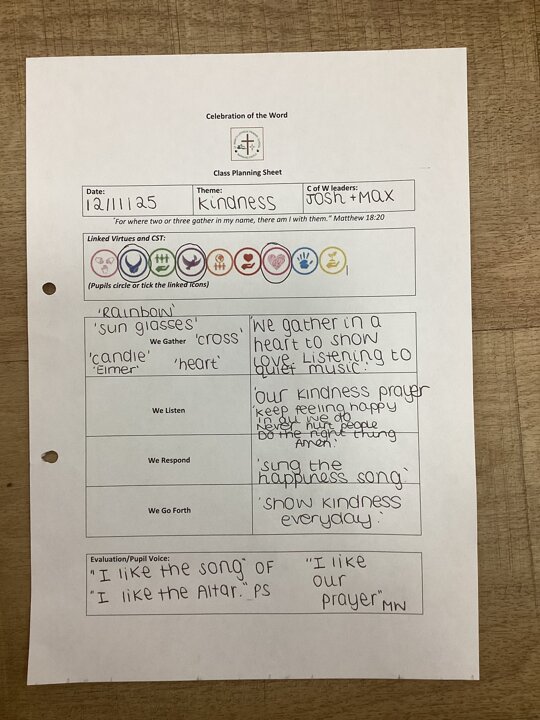 Celebration of the Word
Class Planning Sheet
Date:
12/11/25
Theme:
Kindness
C of W leaders:
Josh + Max
'For where two or three gather in my name, there am I with them." Matthew 18:20
Linked Virtues and CST:
(Pupils circle or tick the linked icons)
'Rainbow'
'sun glasses'
We Gather 'cross'
'candle' 'heart'
'Elmer'
'We gather in a
heart to show
love. Listening to
quiet music.'
We Listen
'Our kindness prayer
'keep feeling happy
in all we do
Never hurt people
Do the right thing
Amen.'
We Respond
'sing the
happiness song'
We Go Forth
'Show kindness
everyday.'
Evaluation/Pupil Voice:
"I like the song" OF
"I like the Altar." PS
"I like
our
prayer" MW